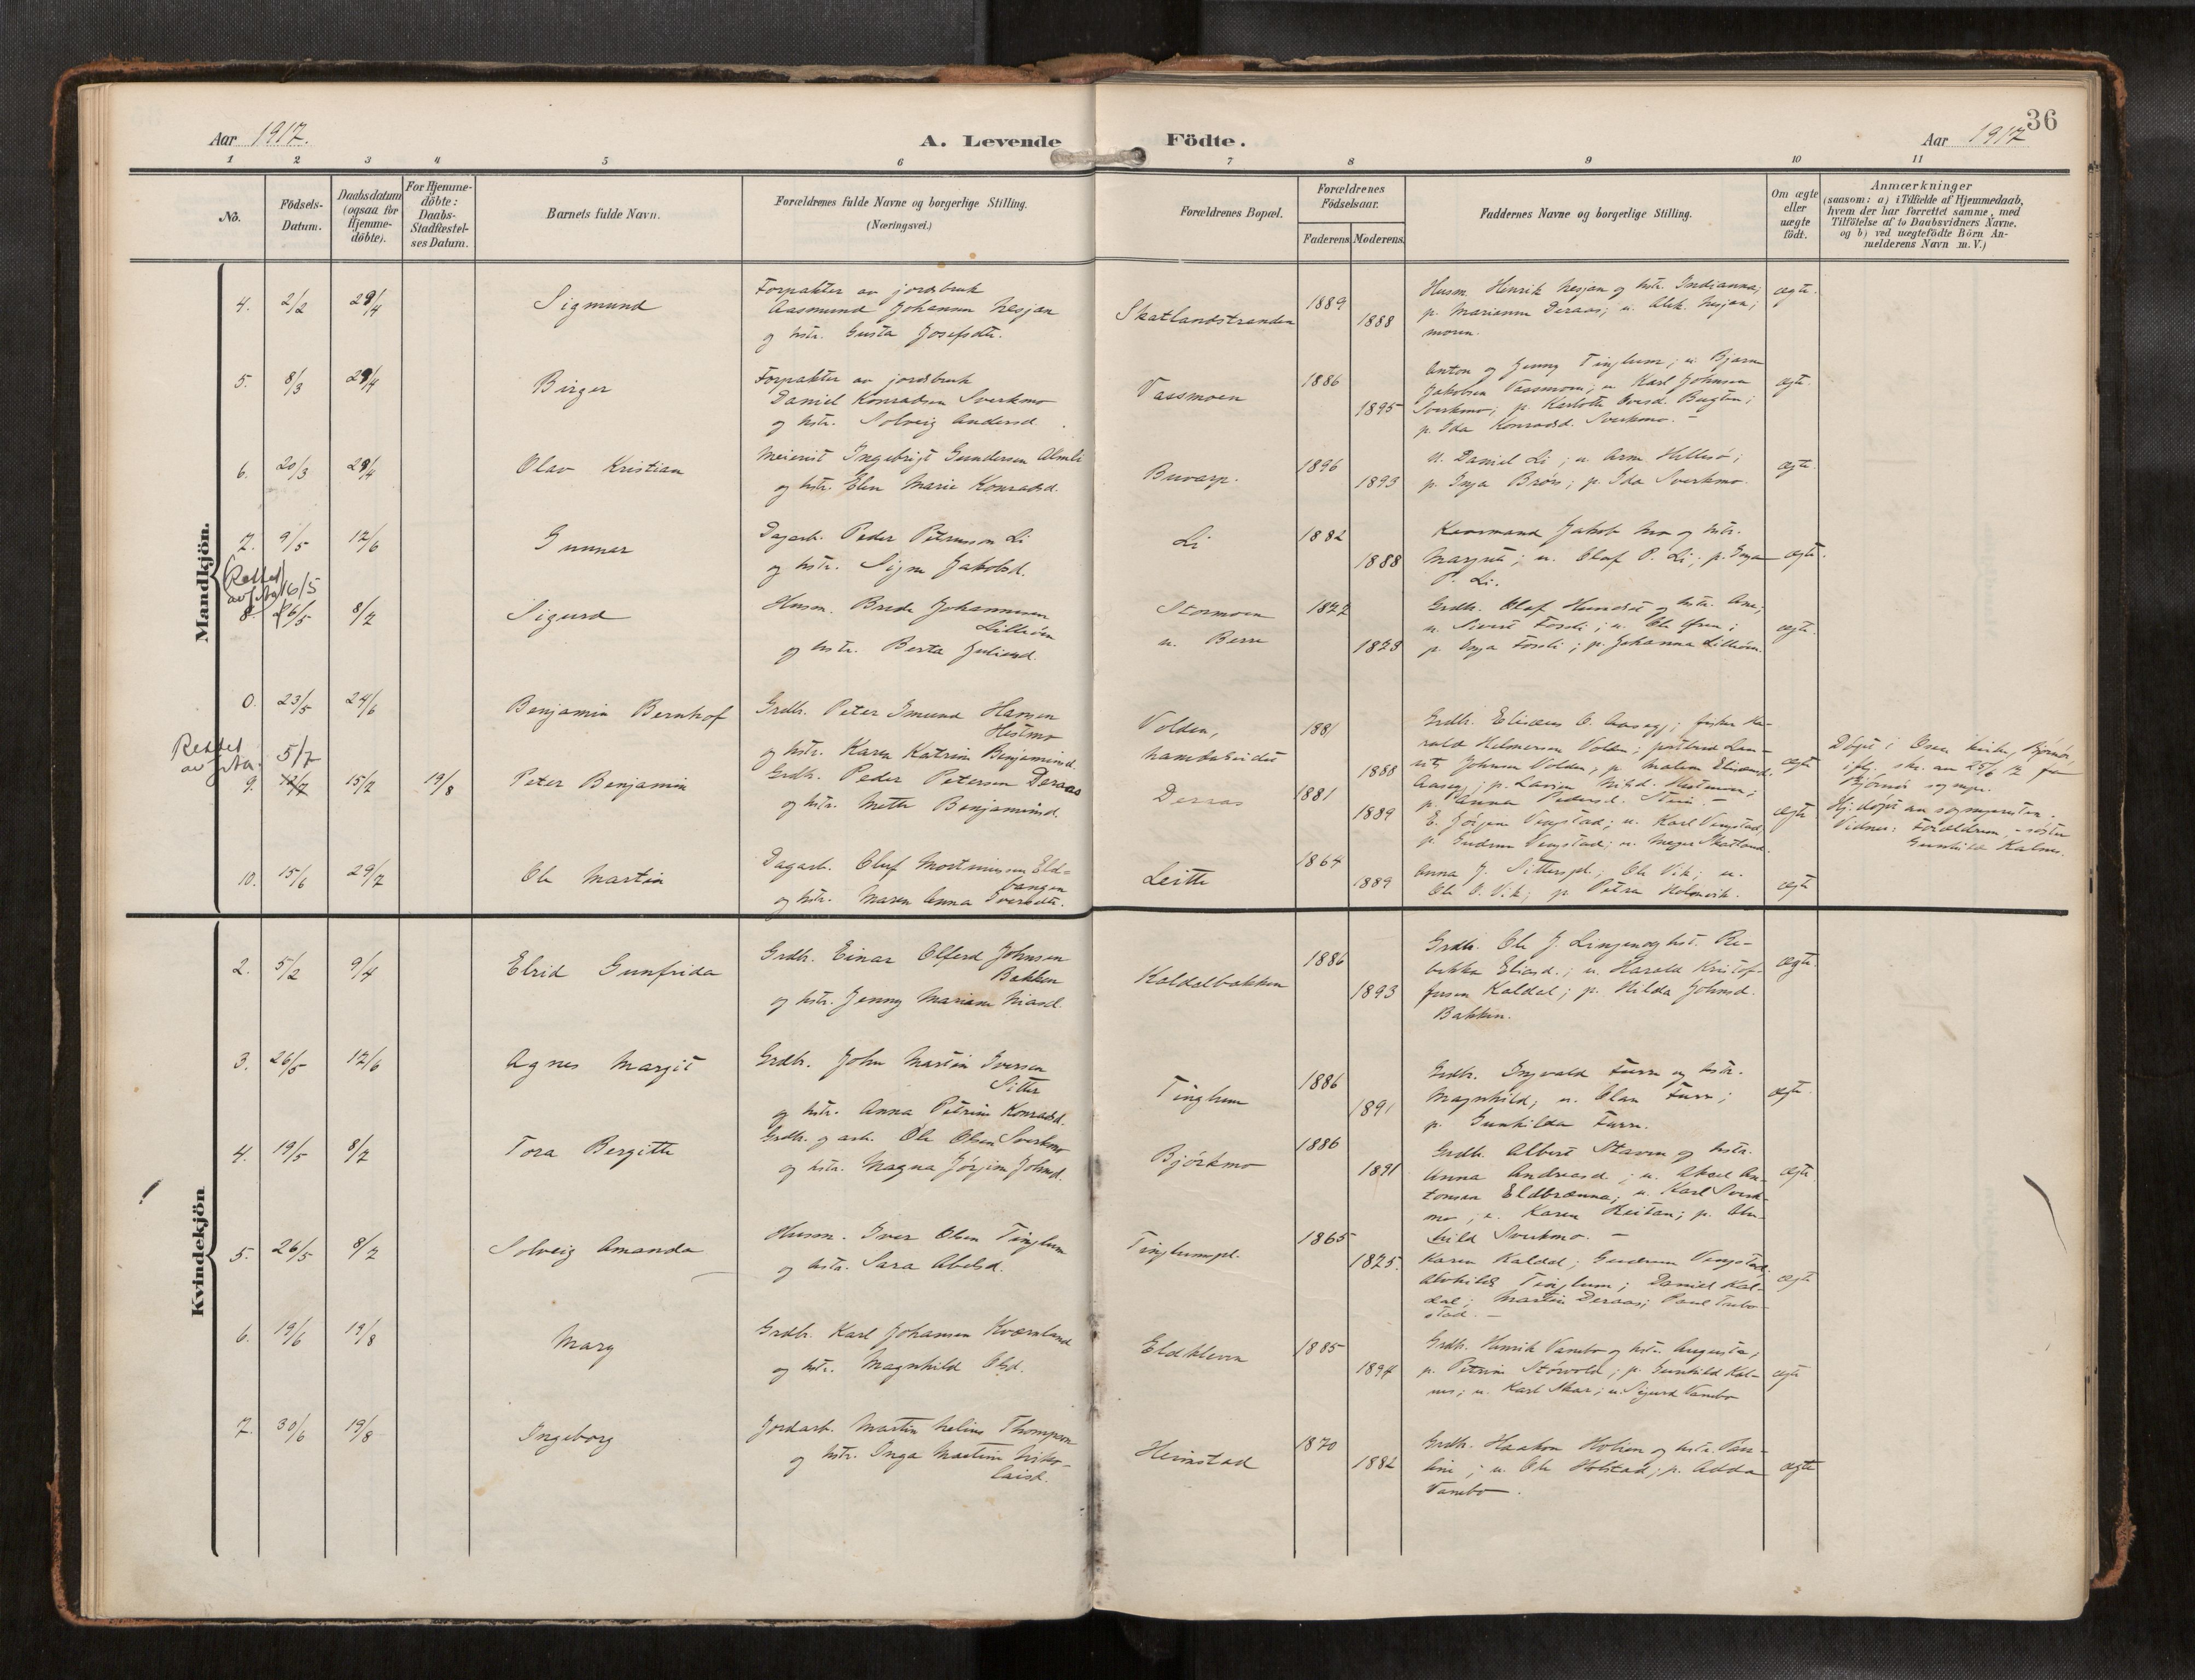 36
Aar 1917.
A. Levende Födte.
Aar 1917
1 2 3 4 5 6 7 8 9 10 11
No.
Födsels-Datum.
Daabsdatum (ogsaa for Hjemme-döbte).
For Hjemme-döbte: Daabs-Stadfæstel-ses Datum.
Barnets fulde Navn.
Forældrenes fulde Navne og borgerlige Stilling.
(Næringsvei.)
Forældrenes Bopæl.
Forældrenes Födselsaar.
Faderens Moderens.
Faddernes Navne og borgerlige Stilling.
Om ægte eller uægte födt.
Anmærkninger
(saasom: a) i Tilfælde af Hjemmedaab,
hvem der har forrettet samme, med
Tilföielse af to Daabsvidners Navne.
og b) ved uægtefödte Börn An-
melderens Navn m. V.)
Mandkjön.
4. 2/2 29/4 Sigmund
Forpakter av jordbruk
Aasmund Johansen Nesjan
og hstr. Gusta Josefsdtr.
Skatlandstranden 1889 1888
Husm. Henrik Nesjan og hstr. Indianna;
p. Marianne Deraas; u. Alek. Nesjan;
moren.
ægte.
5. 8/3 29/4 Birger
Forpakter av jordbruk
Daniel Konradsen Sverkmo
og hstr. Solveig Andersd.
Vassmoen 1886 1895
Anton og Jenny Tinglum; u. Bjarne
Jakobsen Vassmoen; u. Karl Johnsen
Sverkmo; p. Karlotte Bugten;
p. Ida Konradsd. Sverkmo. -
ægte.
6. 20/3 29/4 Olav Kristian
Meierist Ingebrigt Gundersen Almli
og hstr. Elen Marie Konradsd.
Buvarp. 1896 1893
U. Daniel Li; u. Arne Hillesö;
p. Inga Brörs; p. Ida Sverkmo.
ægte.
7. 9/5 17/6 Gunnar
Dagarb. Peder Petersson Li
og hstr. Signe Jakobsd.
Li 1882 1888
Kaarmand Jakob Mo og hstr.
Margrete; u. Oluf P. Li; p. Inga
P. Li.
ægte.
(Rettet av fr.ba) 16/5
8. 26/5 8/7 Sigurd
Husm. Brede Johannesen
Lilleöen
og hstr. Berta Juliesd.
Stormoen
u. Berre
1877 1873
Grdbr. Olaf Hundse og hstr. Ane;
u. Sivert Fosli; u. Ole
p. Inga Fosli; p. Johanna Lilleöen.
ægte.
0. 23/5 24/6 Benjamin Bernhof
Grdbr. Peter Imund Hansen
Hestmo
og hstr. Karen Katrine Benjamind.
Volden,
Namdaleidet 1881 1888
Grdbr. Elisæus O. Aasegg; fisker Ha-
rald Helmersen Volden; postbud Lau-
rits Johnsen Volden; p. Malene Elisæusd.
Aasegg; p. Lavine Hestmoen;
p. Anna Pedersd. Stein. -
ægte
Döpt i Osen kirke, Björnör,
iflg. skr. av 25/6 17 fra
Björnör sognepr.
Rettet av fr.ba. 5/7
9. 12/7 15/7 19/8 Peter Benjamin
Grdbr. Peder Petersen Deraas
og hstr. Mette Benjamind.
Derraas 1881 1889
E. Jörgen Vengstad; u. Karl Vengstad;
p. Gudrun Vengstad; u. Meyer Skatland.
ægte
Hj.döpt av sognepresten.
Vidner: Forældrene, - söster
Gunhild Kalnes.
10. 15/6 29/7 Ole Martin
Dagarb. Oluf Mortinussen Eld-
bangen
og hstr. Maren Anna Iversdtr.
Leitte 1864 1889
Anna J. Sitterspl.; Ole Vik; u.
Ole O. Vik; p. Petra Holmvik.
ægte
Kvindekjön
2. 5/2 9/4 Elrid Gunfrida
Grdbr. Einar Olferd Johnsen
Bakken
og hstr. Jenny Mariane Niasd.
Kaldalbakken 1886 1893
Grdbr. Ole J. Lingen og hst. Re-
bekka Eliasd.; u. Harald Kristof-
fersen Kaldal; p. Hilda Johnsd.
Bakken.
ægte.
3. 26/5 17/6 Agnes Margit
Grdbr. John Martin Iversen
Sitter
og hstr. Anna Petrine Konradsd.
Tinglum 1886 1891
Grdbr. Ingvald Furre og hstr.
Magnhild; u. Olav Furre;
p. Gunhilda Furre.
ægte.
4. 19/5 8/7 Tora Bergitte
Grdbr. og arb. Ole Olsen Sverkmo
og hstr. Magna Jörgine Johnsd.
Björkmo 1886 1891
Grdbr. Albert Staven og hstr.
Anna Andreasd.; u. Aksel An-
tonsen Eldbrænna; u. Karl Sverk-
mo; u. Karen Reitan; p. Olu-
hild Sverkmo. -
ægte.
5. 26/5 8/7 Solveig Amanda
Husm. Iver Olsen Tinglum
og hstr. Sara Abelsd.
Tinglumspl. 1865 1875.
Karen Kaldal; Gudrun Vengstad;
Alvhild Tinglum; Daniel Kal-
dal; Martin Deraas; Paul Tarbo-
stad. -
ægte
6. 19/6 19/8 Mary
Grdbr. Karl Johansen Kværnland
og hstr. Magnhild Olsd.
Eldkleven 1885 1894
Grdbr. Henrik Vanebo og hstr. Augusta;
p. Petrine Störvold; p. Gunhild Kal-
nes; u. Karl Skar; u. Sigurd Vanebo
ægte
7. 30/6 19/8 Ingeborg
Jordarb. Martin Nelius Thompson
og hstr. Inga Martine Niko-
laisd.
Heimstad 1870 1882
Grdbr. Haakon Holien og hstr. Pau-
line; u. Ole Holstad; p. Adda
Vanebo.
ægte